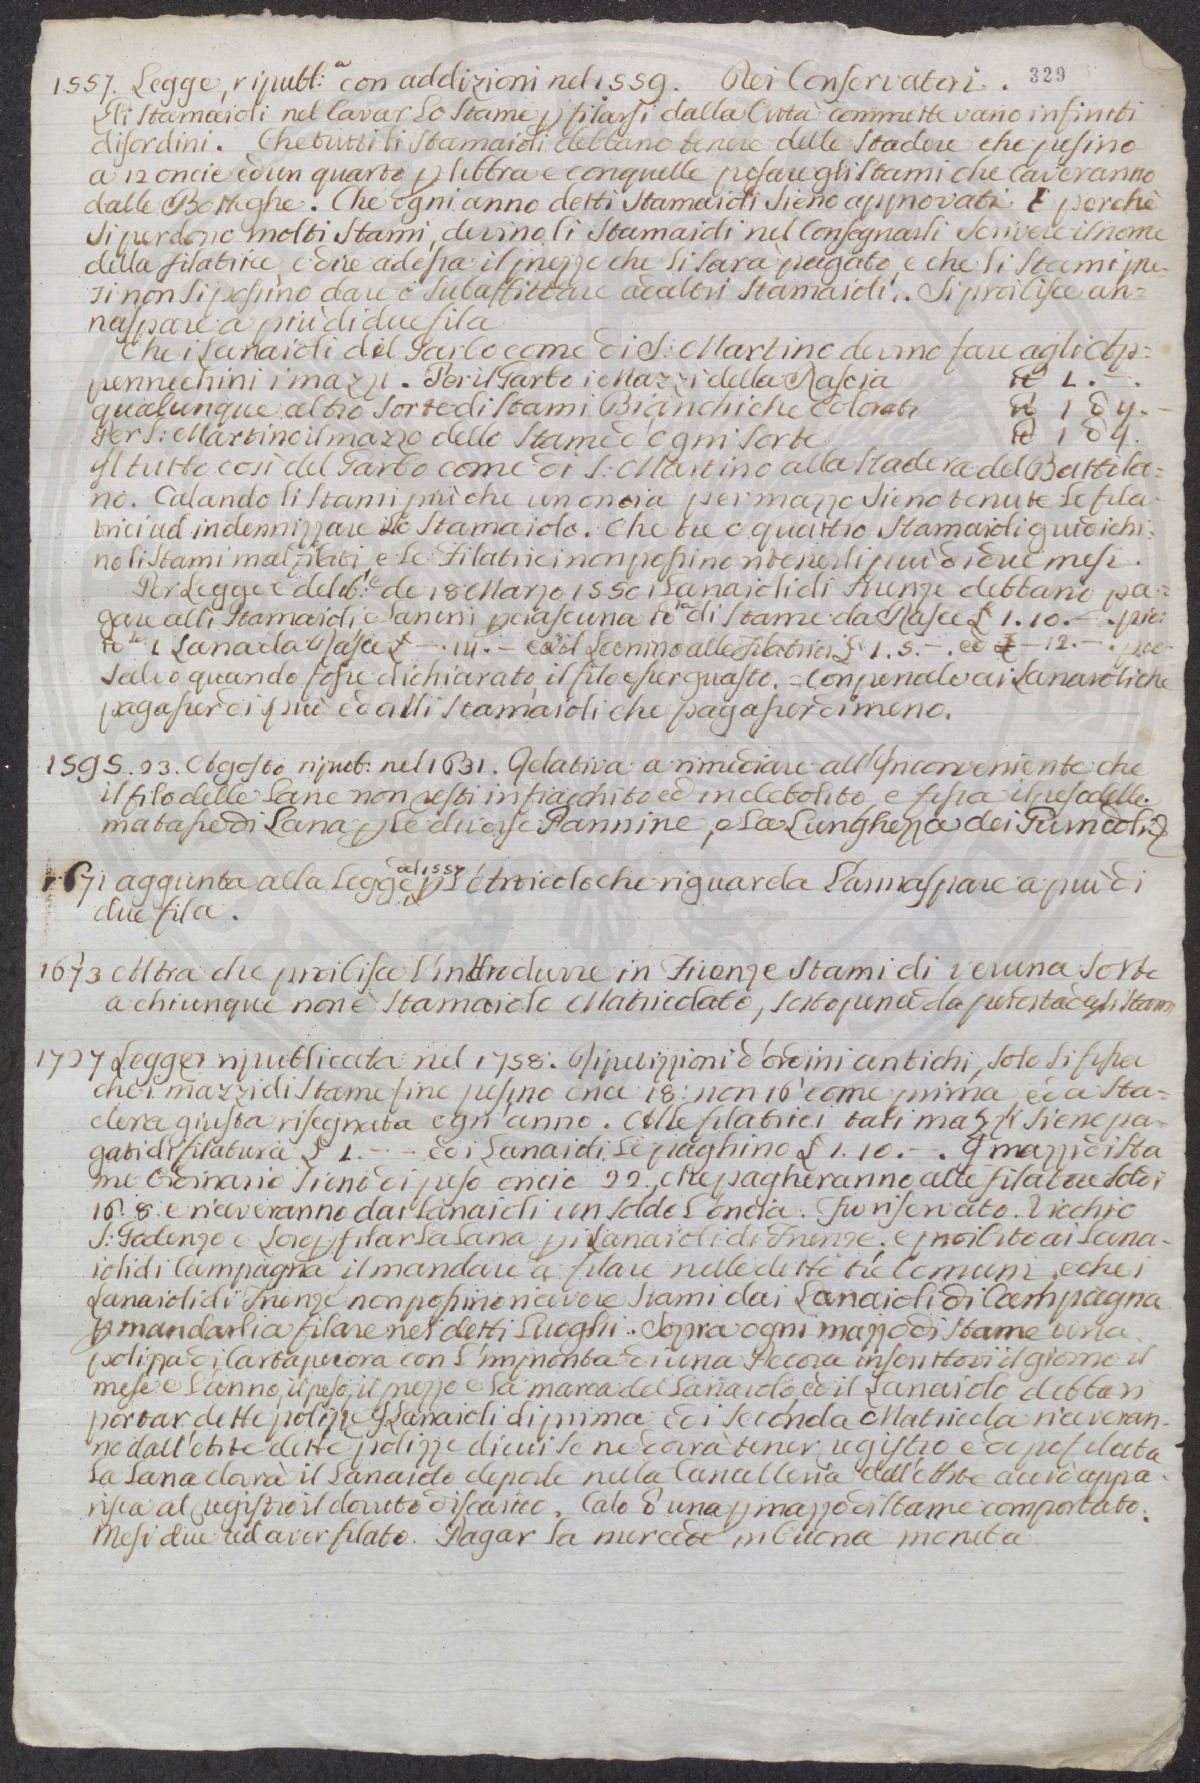 329
1557. Legge, ripubl:ª con addizioni nel 1559. Dei Conservatori.
Gli Stamaioli nel Cavar lo Stame p filarsi dalla Città commettevano infiniti
disordini. Che tutti li Stamaioli debbano tenere delle Stadere che pesino
a 12 oncie ed un quarto p libbra e con quelle pesare gli Stami che Caveranno
dalle Botteghe. Che ogni anno detti Stamaioli sieno approvati E perchè
si perdono molti Stami, devino li Stamaioli nel Consegnarli scrivere il nome
della filatrice, e dire ad essa il prezzo che li sarà pagato, e che li Stami pre-
si non si possino dare o subaffittare ad altri Stamaioli. Si proibisce an=
naspare a più di due fila
Che i Lanaioli del Garbo come di S: Martino devino fare agli Ap=
pennechini i mazzi. Per il Garbo i Mazzi della Rascia ℔ 1. –.
qualunque altro sorte di Stami Bianchi che Colorati ℔ 1 δ 4. –
Per S: Martino il mazzo dello Stame d'ogni Sorte ℔ 1 δ 4.
Il tutto così del Garbo come di S: Martino alla Stadera del Battila=
no. Calando li Stami più che un oncia per mazzo sieno tenute le fila-
trici ad indennizzare lo Stamaiolo. Che tre o quattro Stamaioli giudichi:
no li Stami mal filati e le Filatrici non possino ritenerli più di due mesi.
Per Legge e delib:e de 18 Marzo 1550 i Lanaioli di Firenze debbano pa-
gare alli Stamaioli e Lanini per ciascuna ℔ª di Stame da Rasce £ 1. 10. –. più
℔ª 1 Lana da Rasce £ –. 14. – ed il Leonino alle filatrici £ 1. 5. –. ed £ – 12. –.
salvo quando fosse dichiarato il filo esser guasto. = Con pena alli Lanaioli che
pagasser di più ed alli Stamaioli che pagasser di meno.
1595. 23. Agosto ripub: nel 1631. Relativa a rimediare all'Inconveniente che
il filo delle Lane non resti infiacchito ed indebolito, e fissa il peso delle
matasse di Lana p le diverse Pannine, e la Lunghezza dei
1671 aggiunta alla Legge del 1557 p l'Articolo che riguarda l'annaspare a più di
due fila.
1673 Altra che proibisce l'introdurre in Firenze Stami di veruna Sorte
a chiunque non è Stamaiolo Matricolato, sotto pena da
1727 Legge ripublicata nel 1758. Ripetizzioni d'ordini antichi, solo si fissa
che i mazzi di Stame fine pesino once 18: non 16 come prima, ed a Sta=
dera giusta risegnata ogni anno. Alle filatrici tali mazzi sieno pa-
gati di filatura £ 1. – – ed i Lanaioli le paghino £ 1. 10. –. I mazzi di Sta
me Ordinario sieno di peso oncie 22, che pagheranno alle filatore soldi
16. 8. e riceveranno dai Lanaioli un soldo l'oncia. Fu riservato. Vicchio
S: Godenzo e p filar la Lana p i Lanaioli di Firenze. e proibito ai Lana-
ioli di Campagna il mandare a filare nelle dette tre Comuni, e che i
Lanaioli di Firenze non possino ricevere Stami dai Lanaioli di Campagna
p mandarli a filare nei detti Luoghi. Sopra ogni mazzo di Stame una
polizza di Cartapecora con l'impronta di una Pecora inscrittovi il giorno il
mese e l'anno, il peso, il prezzo e la marca del Lanaiolo, ed il Lanaiolo debba vi
portar dette polizze. I Lanaioli di prima e di seconda Matricola riceveran-
no dall'Arte dette polizze di cui se ne dovrà tener registro e dopo filata
la Lana dovrà il Lanaiolo deporle nella Cancelleria dell'Arte acciò appa-
risca al registro il dovuto discarico. Calo d'un p mazzo di Stame comportato.
Mesi due ad aver filato. Pagar la mercede in buona moneta